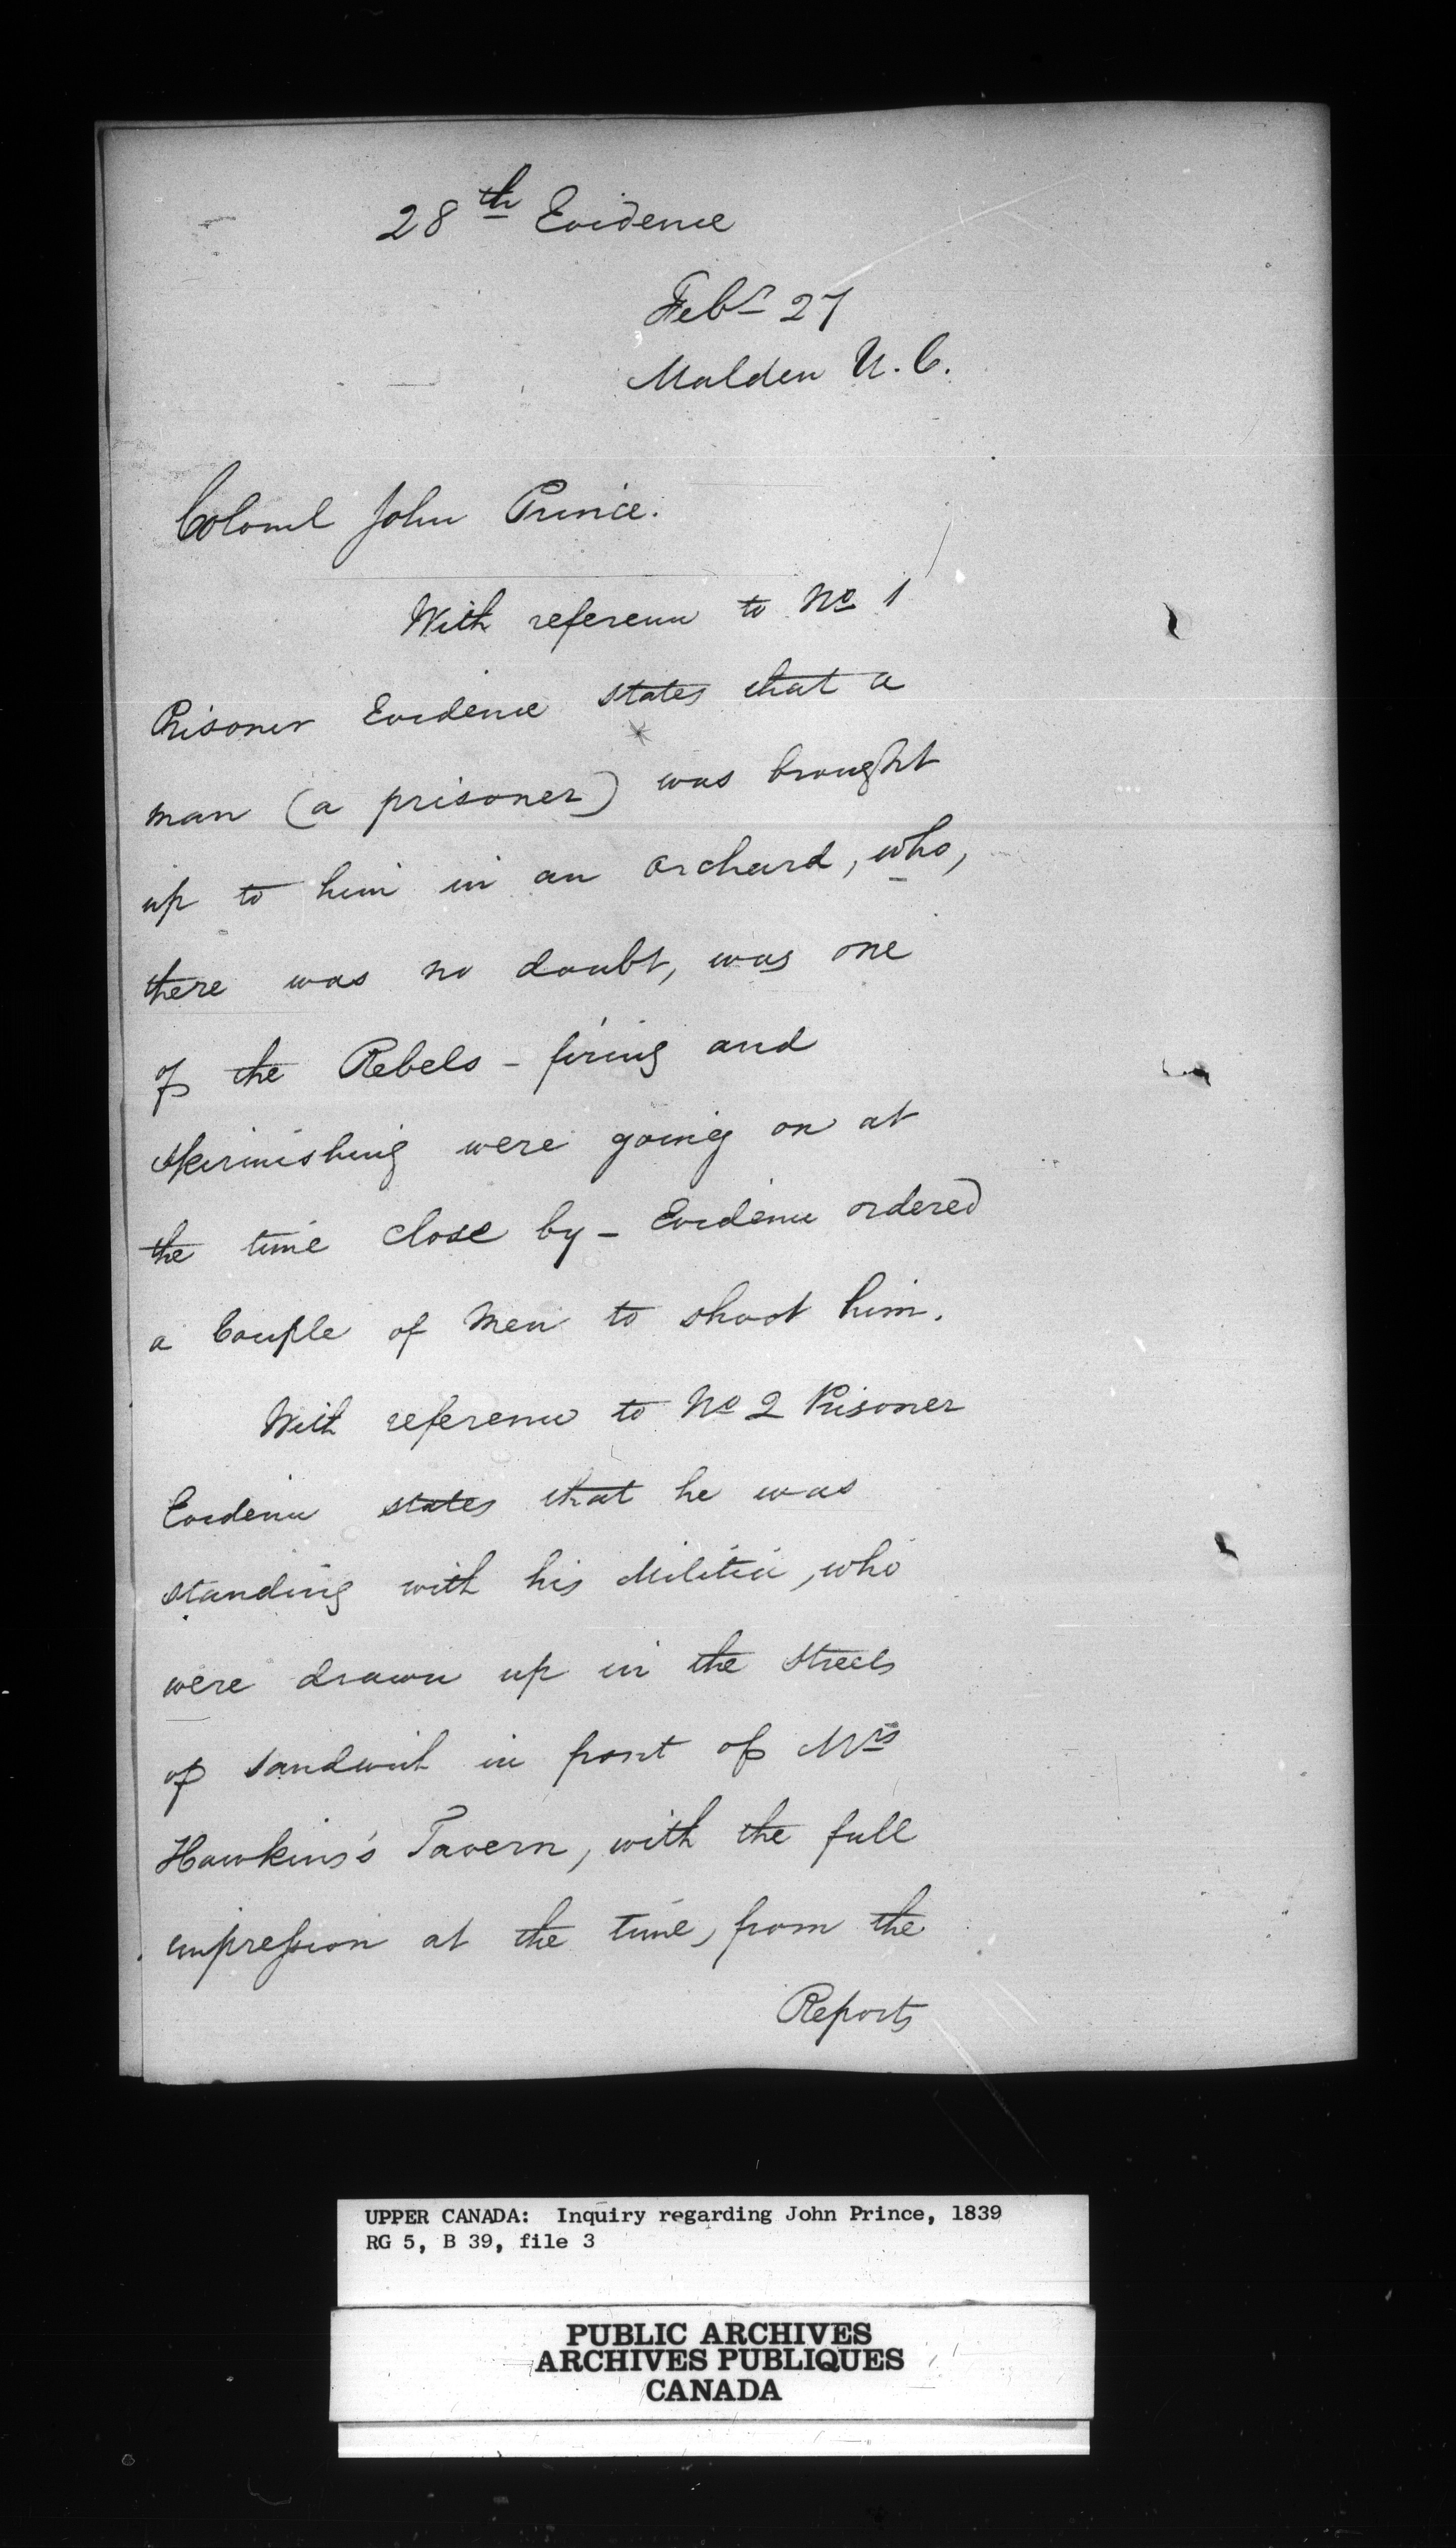 28th Evidence
Feby 27
Malden U.C.
Colonel John Prince.
With reference to No 1
Prisoner Evidence states that a
man (a prisoner) was brought
up to him in an orchard, who,
there was no doubt, was one
of the Rebels - firing and
skirmishing were going on at
the time close by - Evidence ordered
a Couple of Men to shoot him.
With reference to No 2 Prisoner
Evidence states that he was
standing with his Militia, who
were drawn up in the streets
of Sandwich in front of Mrs
Hawkins's Tavern, with the full
impression at the time, from the
Reports
UPPER CANADA: Inquiry regarding John Prince, 1839
RG 5, B 39, file 3
PUBLIC ARCHIVES
ARCHIVES PUBLIQUES
CANADA